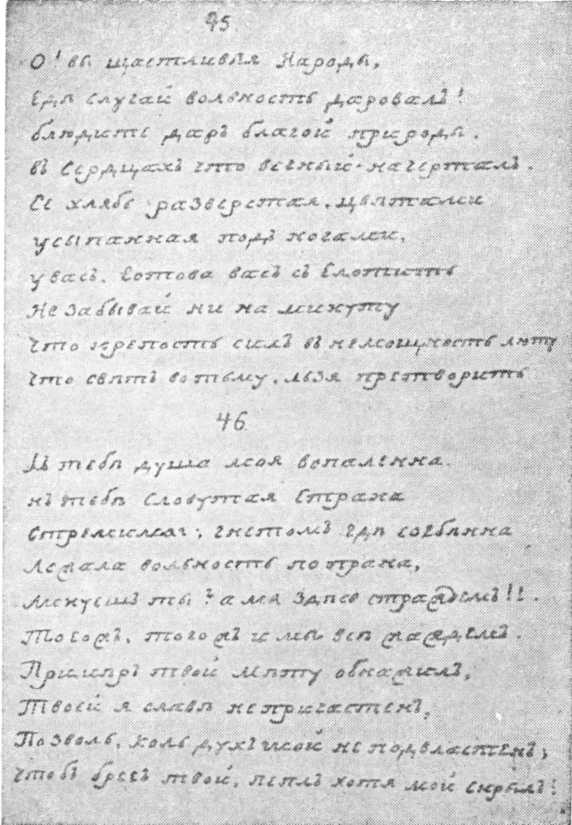 45
О! вы щастливыя Народы,
Гдѣ случай вольность даровалъ!
блюдите даръ благой природы.
въ Сердцахъ что вечный начерталъ.
Се хлябь разверстая, цвѣтами
усыпанная подъ ногами,
у васъ. Готова васъ сглотить
Не забывай ни на минуту
Что крепость силъ въ немощность люту
Что свѣтъ во тьму, льзя претворить
46
Къ тебѣ душа моя вспаленна.
къ тебѣ Словутая Страна
Стремится, гнетомъ гдѣ согбенна
Лежала вольность попрана,
Ликуешъ ты! а мы здѣсь страждемъ!!.
Тогожъ, тогожъ и мы всѣ жаждемъ.
Примѣръ твой мѣту обнажилъ,
Твоей я славѣ непричастенъ,
Позволь, коль духъ мой неподвластенъ,
Чтобъ брегъ твой, пеплъ хотя мой скрылъ!